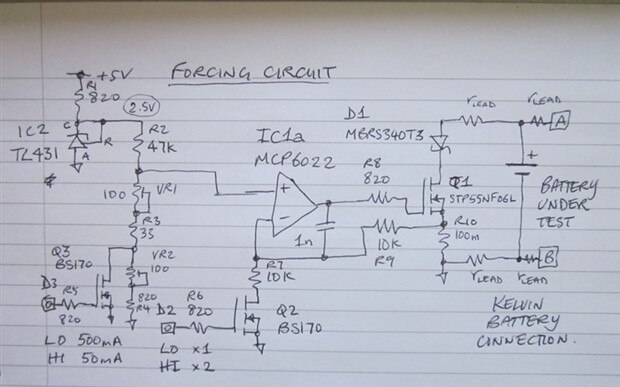 FORCING CIRCUIT
+5V
R1
820
2.5V
C
R
A
IC2
TL431
R2
47K
100
VR1
R3
33
Q3
BS170
D3
R5
820
VR2
100
820
R4
LO 500mA
HI 50mA
IC1a
MCP6022
+
-
1n
R7
10K
D2
R6
820
Q2
BS170
LO x1
HI x2
R8
820
10K
R9
D1
MBRS340T3
Q1
STP55NF06L
R10
100m
rLEAD
rLEAD
A
+
BATTERY
UNDER
TEST
B
rLEAD
rLEAD
KELVIN
BATTERY
CONNECTION.